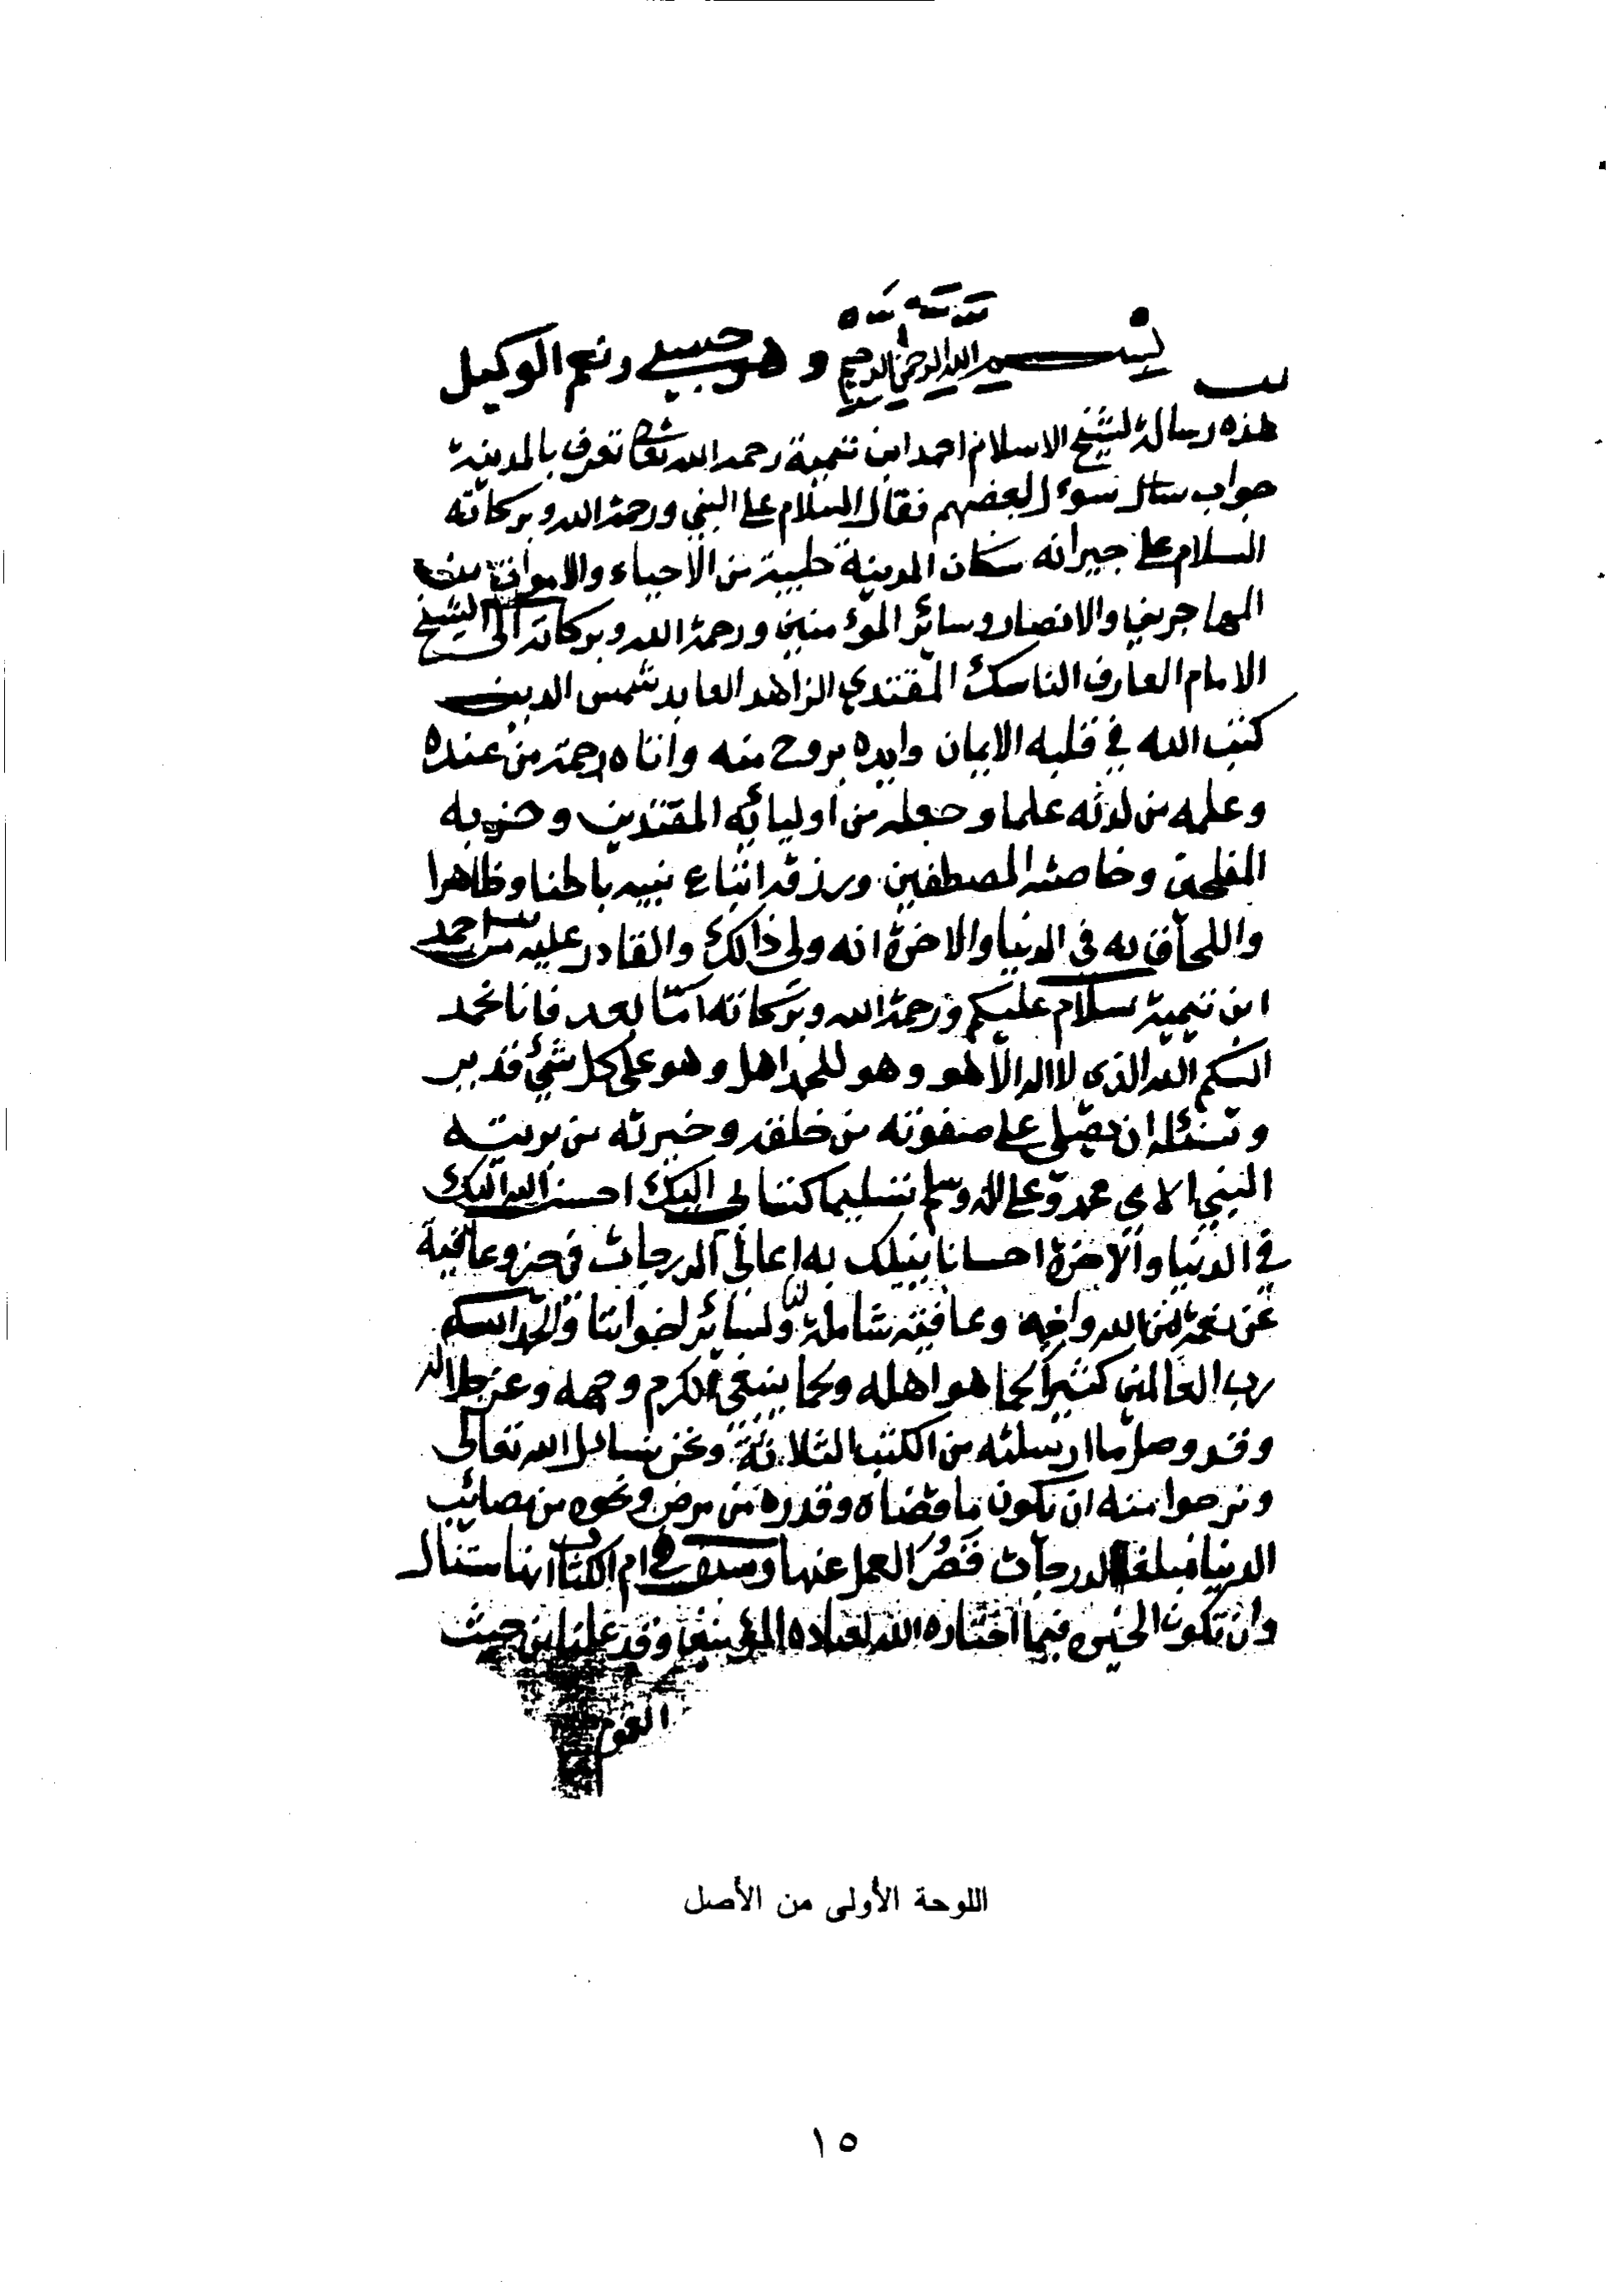 بسم الله الرحمن الرحيم وهو حسبي ونعم الوكيل
هذه رسالة لشيخ الاسلام احمد ابن تيمية رحمه الله تعا تعرف بالمدينة
جواب لبعضهم فقال السلام على النبي ورحمة الله وبركاته
السلام على جيرانه سكان المدينة طيبة من الأحياء والاموات من
المهاجرين والانصار وسائر المؤمنين ورحمة الله وبركاته الى الشيخ
الامام العارف الناسك المقتدي الزاهد العابد شمس الدين
كتب الله في قلبه الايمان وايده بروح منه واتاه رحمة من عنده
وعلمه من لدنه علما وجعله من أوليائه المقتدين وحزبه
المفلحين وخاصته المصطفين ورزقه اتباع نبيه باطنا وظاهرا
واللحاق به في الدنيا والاخرة انه ولي ذالك والقادر عليه من احمد
ابن تيمية سلام عليكم ورحمة الله وبركاته أمّا بعد فإنا نحمد
اليكم الله الذي لا اله الا هو وهو للحمد اهل وهو على كل شئ قدير
ونسئله ان يصلي على صفوته من خلقه وخيرته من بريته
النبي الامي محمد وعلى اله وسلم تسليما كتابي اليك احسن الله اليك
في الدنيا والآخرة احسانا ينيلك به اعالي الدرجات في خير وعافية
عن نعمة من الله وعافية شاملة لنا ولسائر اخواننا والحمد لله
رب العالمين كثيرا كما هو اهله وكما ينبغي لكرم وجهه وعز جلاله
وقد وصل ما ارسلته من الكتب الثلاثة ونحن نسائل الله تعالى
ونرجوا منه ان يكون ما قضاه وقدره من مرض ونحوه من مصائب
الدنيا مبلغا لدرجات قَصُرَ العمل عنها وسبق في ام الكتاب انها ستنال
وان تكون الخيرة فيما اختاره الله لعباده المؤمنين وقد علمنا من حيث
العموم
اللوحة الأولى من الأصل
١٥